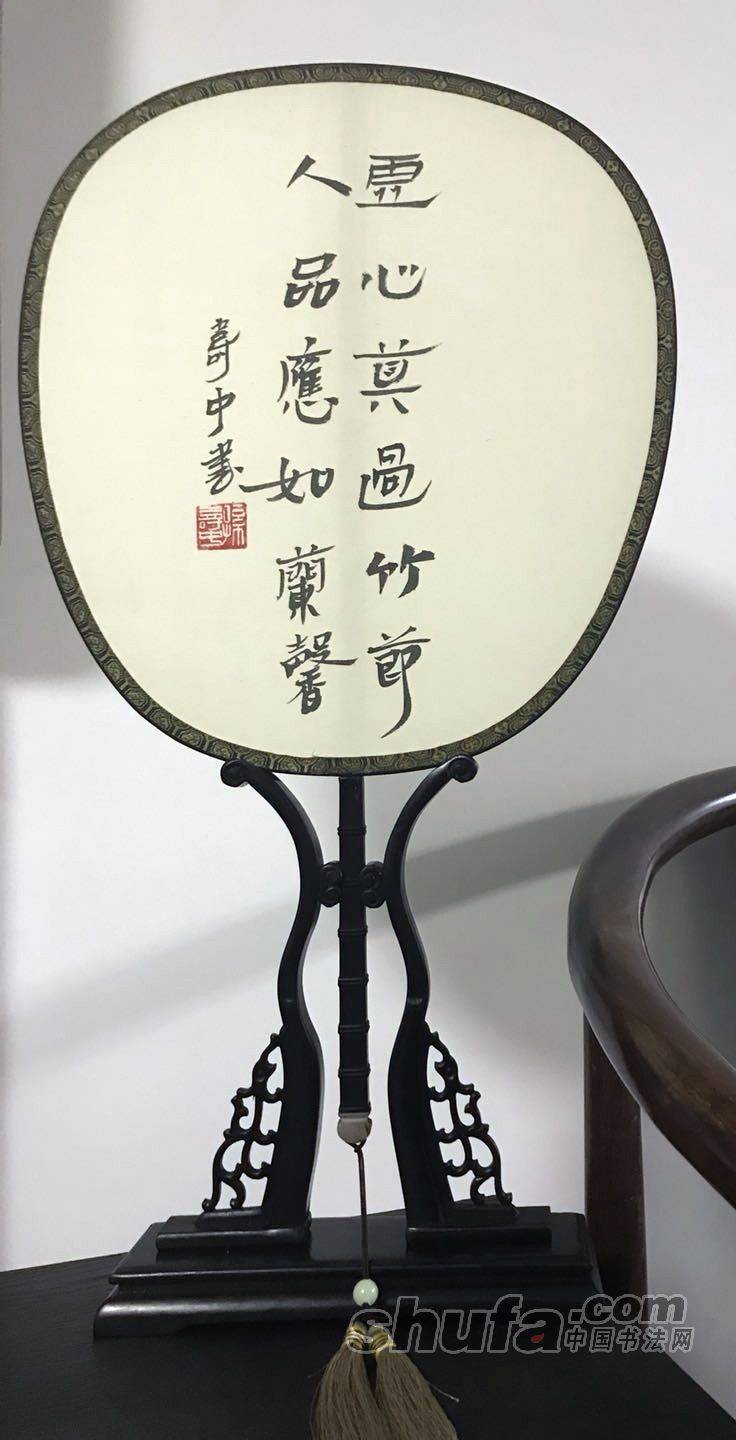 虛心莫過竹節
人品應如蘭馨
壽中書
shufa.com
中国书法网